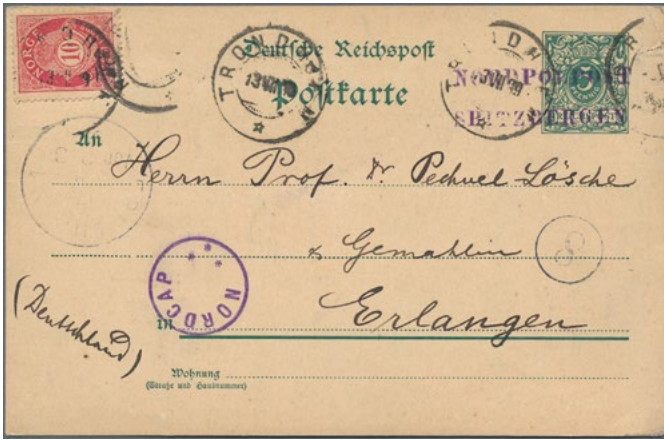 NORGE 10
Deutsche Reichspost
Postkarte
TRONDHJEM
NORDPOLPOST
SPITZBERGEN
An
Herrn Prof. Dr Pechuel Lösche
& Gemahlin
8
NORDCAP
in Erlangen
(Deutschland)
Wohnung
(Straße und Hausnummer)